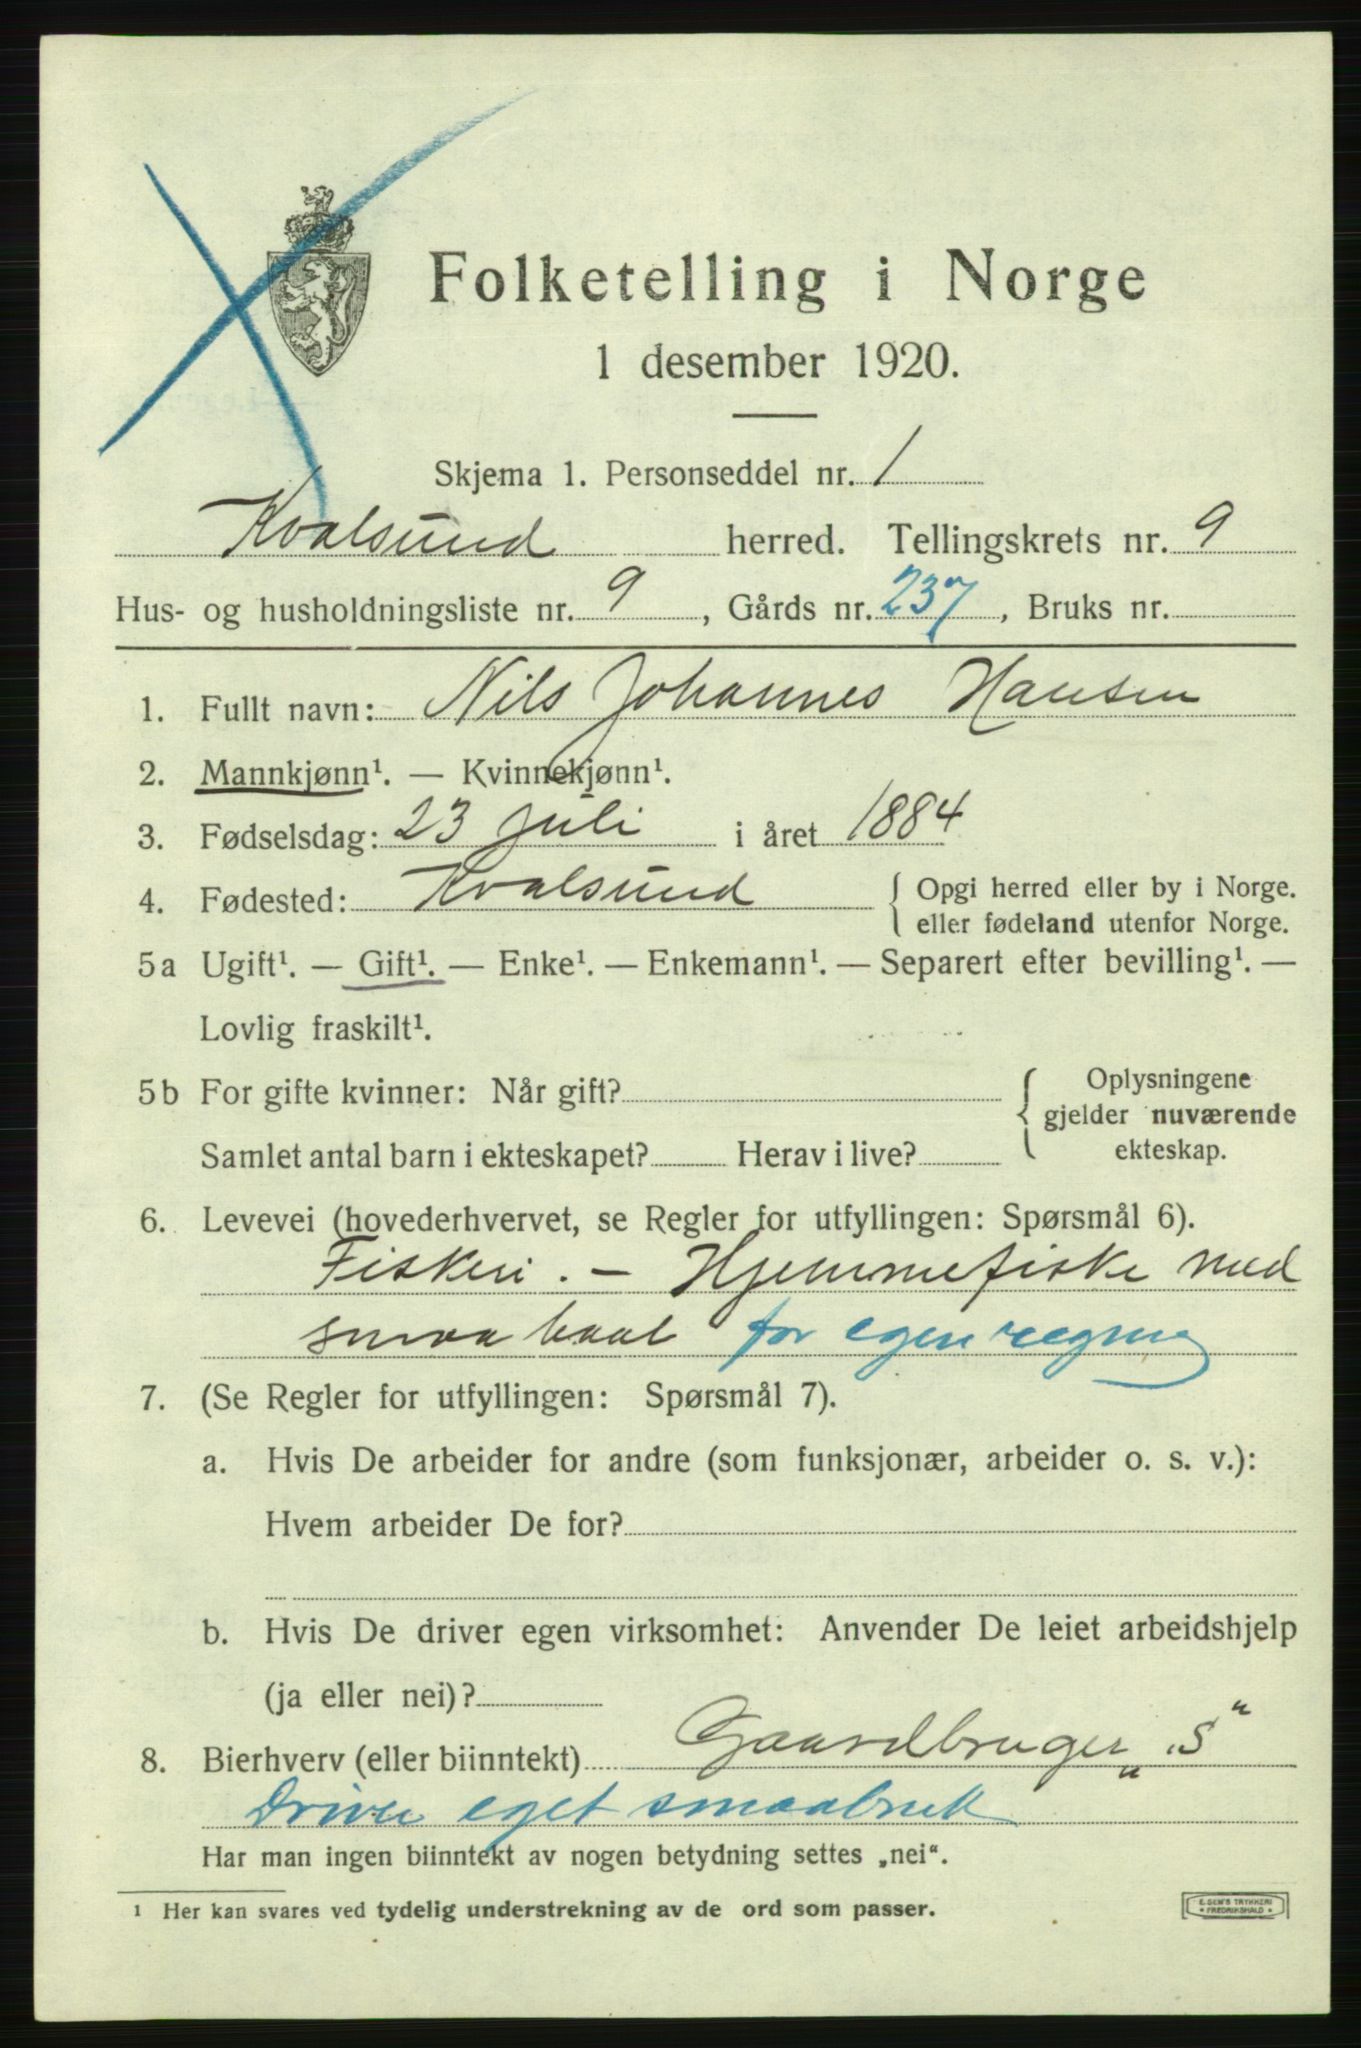 Folketelling i Norge
1 desember 1920.
Skjema 1. Personseddel nr. 1
Kvalsund herred. Tellingskrets nr. 9
Hus- og husholdningsliste nr. 9, Gårds nr. 237, Bruks nr.
1. Fullt navn: Nils Johannes Hansen
2. Mannkjønn¹. — Kvinnekjønn¹.
3. Fødselsdag: 23 juli i året 1884
4. Fødested: Kvalsund { Opgi herred eller by i Norge.
eller fødeland utenfor Norge.
5a Ugift¹. — Gift¹. — Enke¹. — Enkemann¹. — Separert efter bevilling¹. —
Lovlig fraskilt¹.
5b For gifte kvinner: Når gift? { Oplysningene
gjelder nuværende
ekteskap.
Samlet antal barn i ekteskapet? Herav i live?
6. Levevei (hovederhvervet, se Regler for utfyllingen: Spørsmål 6).
Fiskeri. — Hjemmefiske med
smaa baat for egen regning
7. (Se Regler for utfyllingen: Spørsmål 7).
a. Hvis De arbeider for andre (som funksjonær, arbeider o. s. v.):
Hvem arbeider De for?
b. Hvis De driver egen virksomhet: Anvender De leiet arbeidshjelp
(ja eller nei)?
8. Bierhverv (eller biinntekt) Gaardbruger „S"
Driver eget smaabruk
Har man ingen biinntekt av nogen betydning settes „nei“.
¹ Her kan svares ved tydelig understrekning av de ord som passer.
E. SEM'S TRYKKERI
FREDRIKSHALD